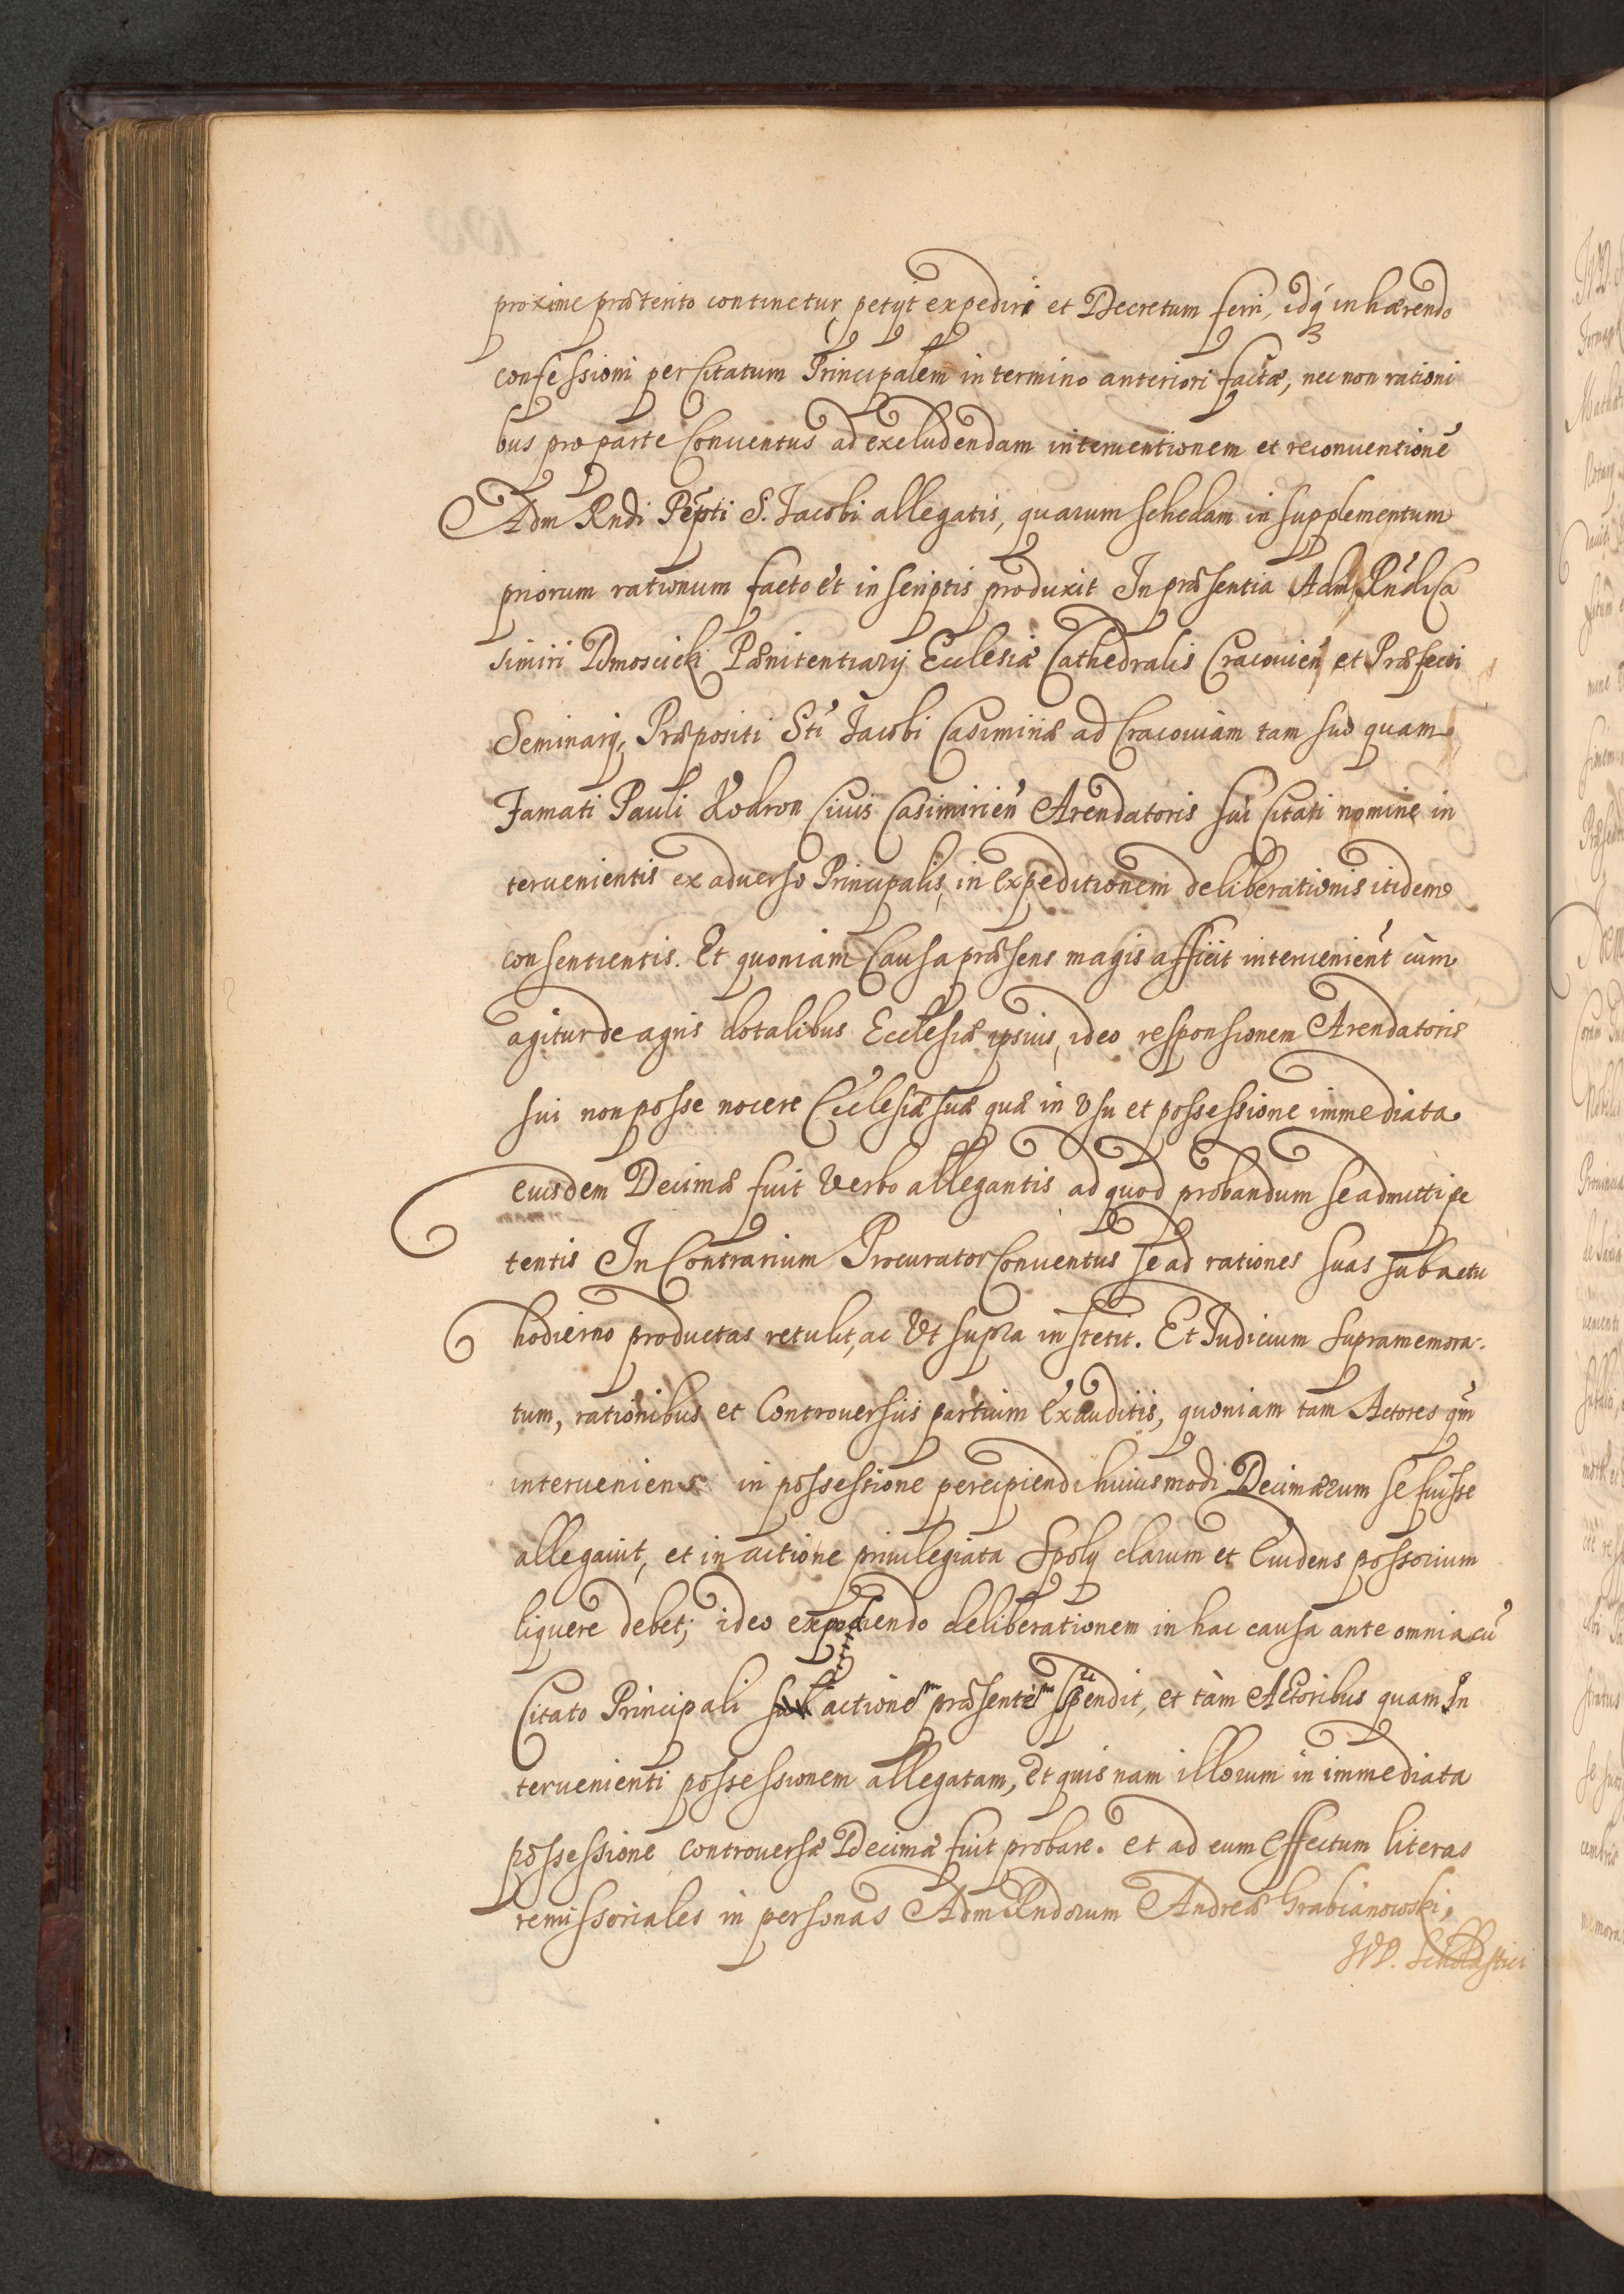 proxime præterito continetur petijt expediri et Decretum ferri, idq́ inhærendo
confessioni per Citatum Principalem in termino anteriori factæ, nec non rationi
bus pro parte Conuentus ad excludendam interuentionem et reconuentionē
Adm Rndi Pępti S. Jacobi allegatis, quarum schedam in supplementum
priorum rationum facto et in scriptis produxit In præsentia Adm Rńdi Ca
simiri Dmosicki Pænitentiarij Ecclesiæ Cathedralis Cracouień et Præfecti
Seminarij, Præpositi Sti Jacobi Casimiriæ ad Cracouiam tam suo quam
Famati Pauli Kodron Ciuis Casimirień Arendatoris sui Citati nomine in
teruenientis ex aduerso Principalis, in expeditionem deliberationis itidem
consentientis. Et quoniam Causa præsens magis afficit interuenient́ cum
agitur de agris dotalibus Ecclesiæ ipsius, ideo responsionem Arendatoris
sui non posse nocere Ecclesiæ suæ quæ in Vsu et possessione immediata
eiusdem Decimæ fuit Verbo allegantis ad quod probandum se admitti pe
tentis In Contrarium Procurator Conuentus se ad rationes suas sub actu
hodierno productas retulit, ac Vt supra institit. Et Judicium supramemora-
tum, rationibus et Controuersiis partium Exauditis, quoniam tam Actores qm̄
interueniens in possessione percipiendi huiusmodi Decimarum se fuisse
allegauit, et in actione priuilegiata Spolij clarum et Euidens possorium
liquere debet; ideo expediendo deliberationem in hac causa ante omnia cū
Citato Principali actionem præsentem spendit, et tàm Actoribus quam In
teruenienti possessionem allegatam, et quis nam illorum in immediata
possessione controuersæ Decimæ fuit probare. et ad eum Effectum literas
remissoriales in personas Adm Rndorum Andreæ Grabianowski,
JVD. Scholastici